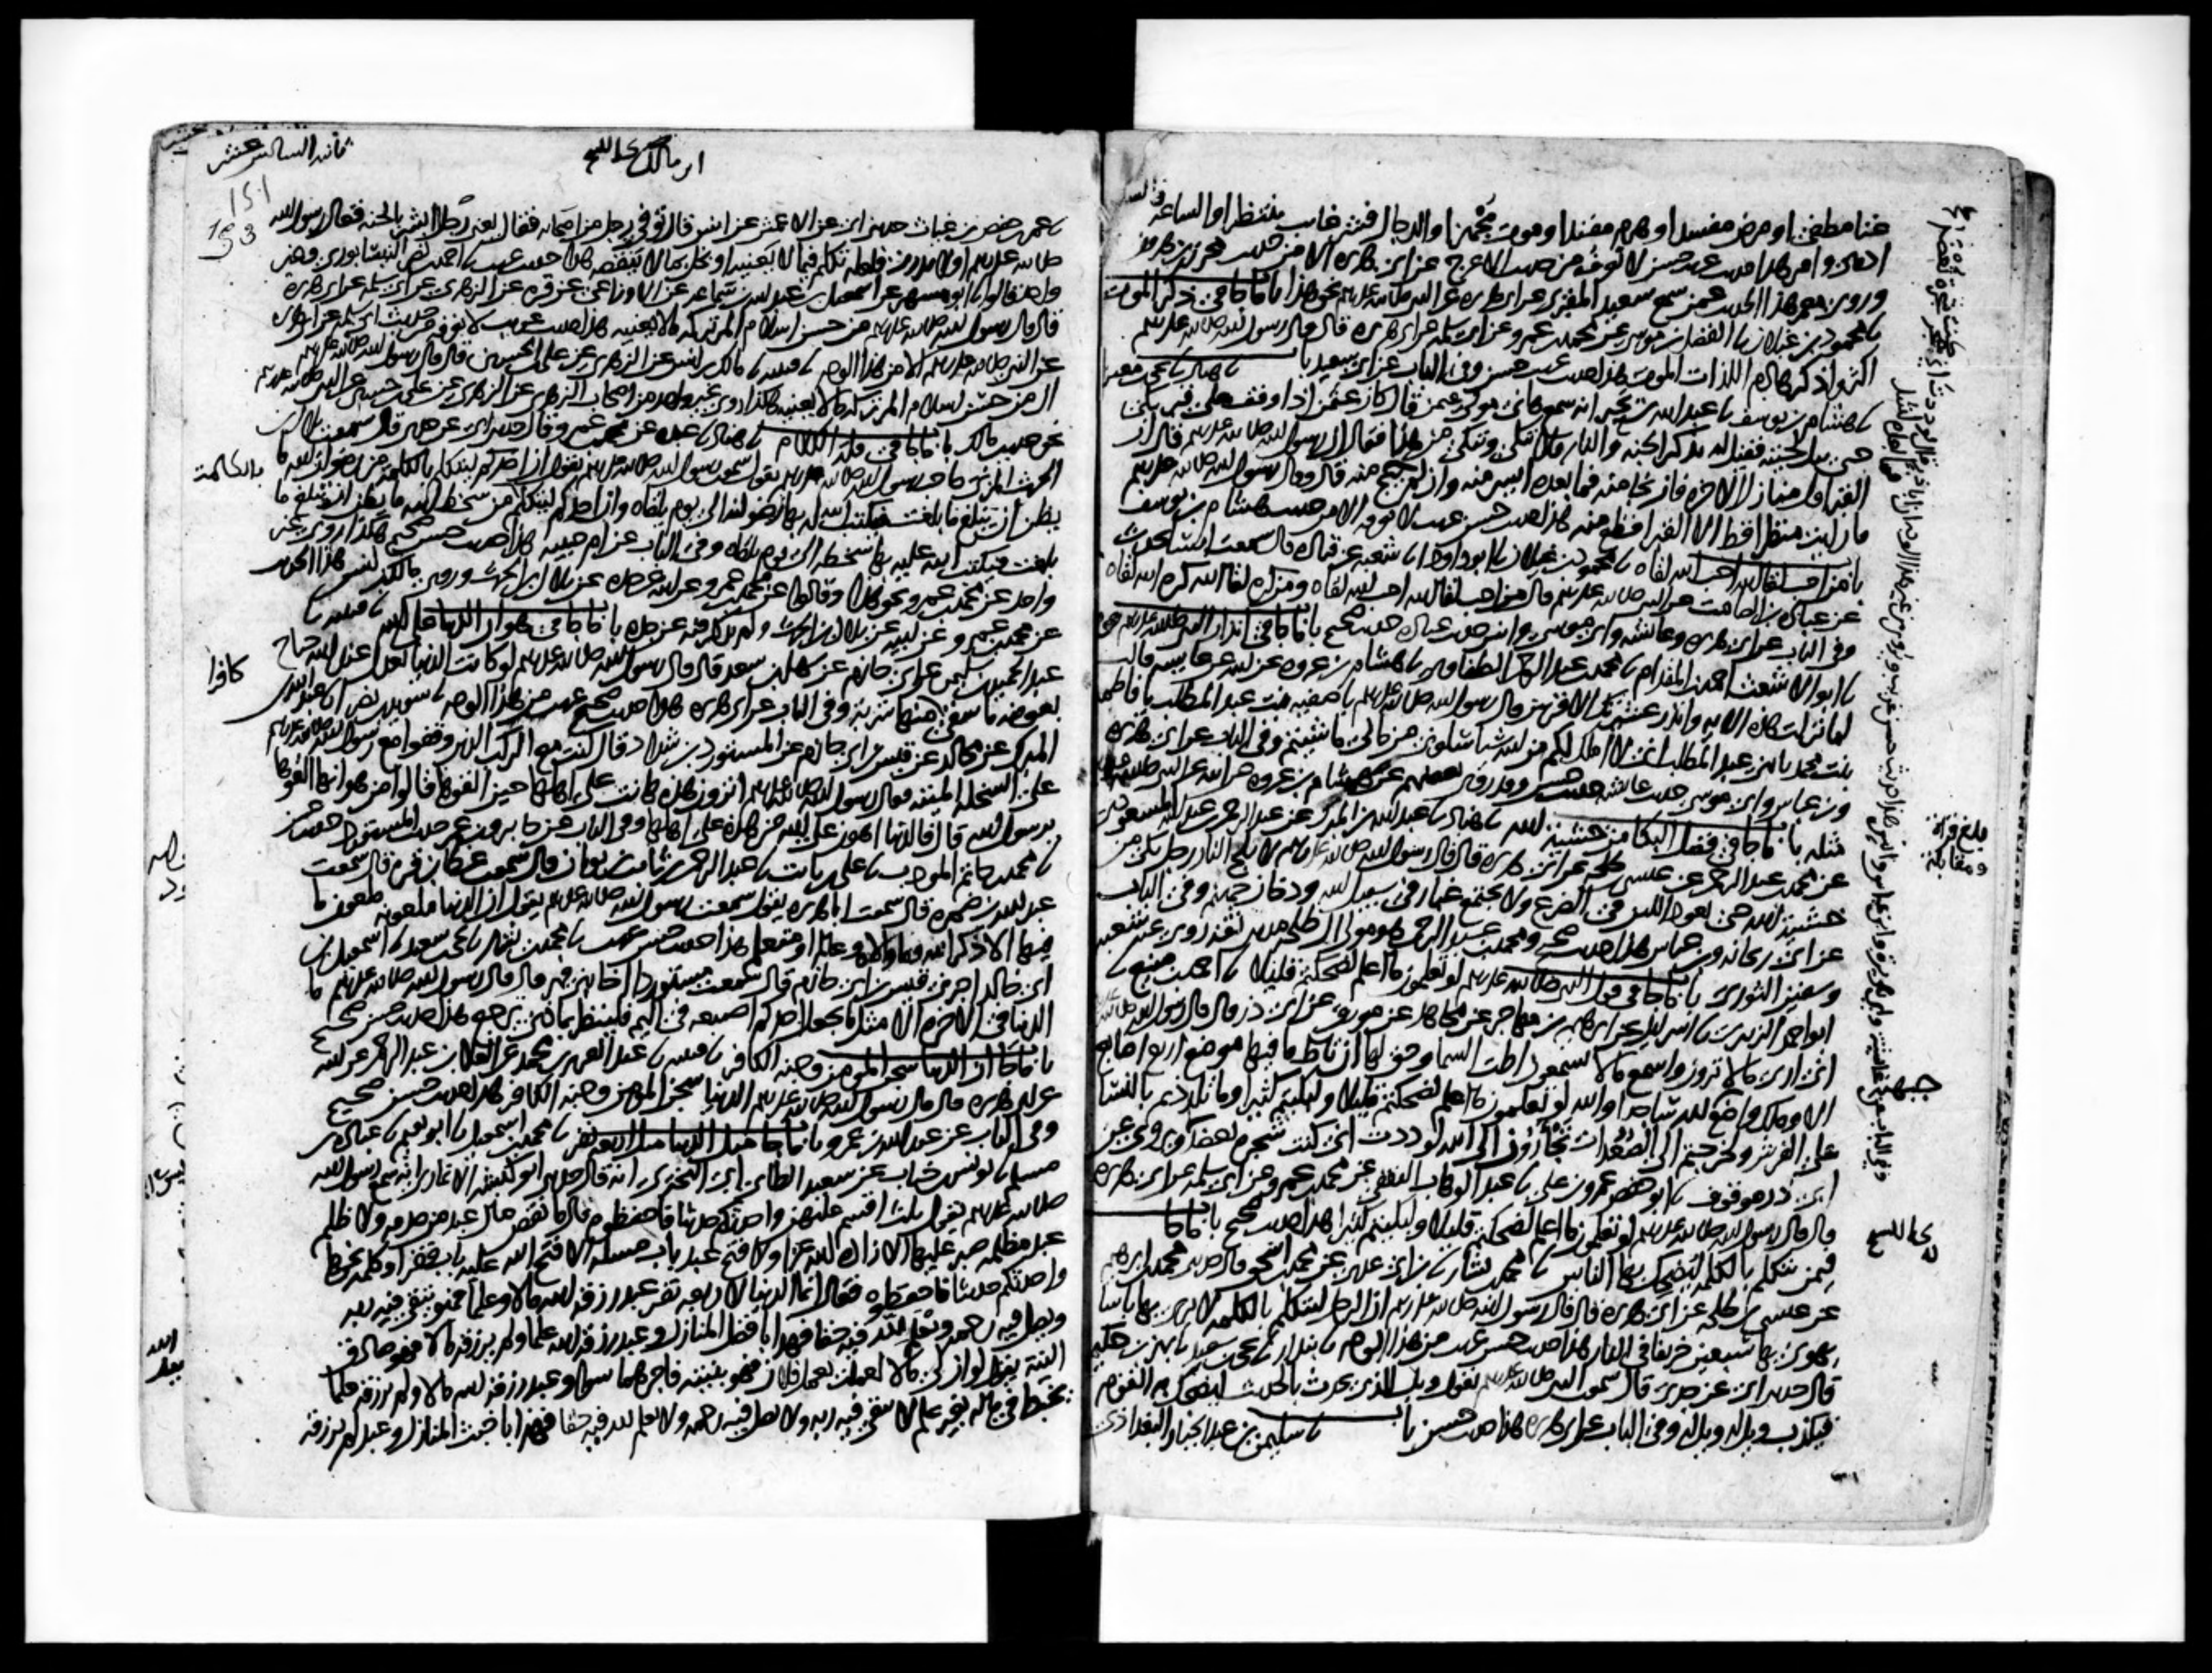 غنا مطغي او مرض مفسد او هرم مفند او موت مجهز او الدجال فشر غايب ينتظر او الساعة فالساعة
ادهى وامر هذا حديث غريب حسن لا نعرفه من حديث الاعرج عن ابي هريرة الا من حديث محرز بن هرون
وروى معمر هذا الحديث عمن سمع سعيد المقبري عن ابي هريرة عن النبي صلى الله عليه وسلم نحو هذا باب ما جا في ذكر الموت
نا محمود بن غيلان نا الفضل بن موسى عن محمد بن عمرو عن ابي سلمة عن ابي هريرة قال قال رسول الله صلى الله عليه وسلم
اكثروا ذكر هاذم اللذات الموت هذا حديث غريب حسن وفي الباب عن ابي سعيد باب نا هناد نا يحيى بن معين
نا هشام بن يوسف نا عبد الله بن بحير انه سمع هانئ مولى عثمن قال كان عثمن اذا وقف على قبر بكى
حتى يبل لحيته فقيل له تذكر الجنة والنار فلا تبكي وتبكي من هذا فقال ان رسول الله صلى الله عليه وسلم قال ان
القبر اول منازل الاخرة فان نجا منه فما بعده ايسر منه وان لم ينج منه قال وقال رسول الله صلى الله عليه وسلم
ما رايت منظرا قط الا القبر افظع منه هذا حديث حسن غريب لا نعرفه الا من حديث هشام بن يوسف
باب من احب لقا الله احب الله لقاه نا محمود بن غيلان نا ابو داود انا شعبة عن قتادة قال سمعت انسا يحدث
عن عبادة بن الصامت عن النبي صلى الله عليه وسلم قال من احب لقا الله احب الله لقاه ومن كره لقا الله كره الله لقاه
وفي الباب عن ابي هريرة وعائشة وابي موسى وانس حديث عبادة حديث صحيح باب ما جا في انذار النبي صلى الله عليه وسلم قومه
نا ابو الاشعث احمد بن المقدام نا محمد بن عبد الرحمن الطفاوي نا هشام بن عروة عن ابيه عن عايشة قالت
لما نزلت هذه الاية وانذر عشيرتك الاقربين قال رسول الله صلى الله عليه وسلم يا صفية بنت عبد المطلب يا فاطمة
بنت محمد يا بني عبد المطلب اني لا املك لكم من الله شيا سلوني من مالي ما شيتم وفي الباب عن ابي هريرة
وابن عباس وابي موسى حديث عائشة حديث حسن وقد روى بعضهم عن هشام بن عروة عن ابيه عن النبي صلى الله عليه وسلم
مثله باب ما جا في فضل البكا من خشية الله نا هناد نا عبد الله بن المبرك عن عبد الرحمن بن عبد الله المسعودي
عن محمد بن عبد الرحمن عن عيسى بن طلحة عن ابي هريرة قال قال رسول الله صلى الله عليه وسلم لا يلج النار رجل بكى من
خشية الله حتى يعود اللبن في الضرع ولا يجتمع غبار في سبيل الله ودخان جهنم وفي الباب
عن ابي ريحانة وابن عباس هذا حديث صحيح ومحمد بن عبد الرحمن هو مولى ال طلحة مديني ثقة روى عنه شعبة
وسفين الثوري باب ما جا في قول النبي صلى الله عليه وسلم لو تعلمون ما اعلم لضحكتم قليلا نا احمد بن منيع نا
ابو احمد الزبيري نا اسرائيل عن ابراهيم بن مهاجر عن مجاهد عن مورق عن ابي ذر قال قال رسول الله صلى الله عليه وسلم
اني ارى ما لا ترون واسمع ما لا تسمعون اطت السما وحق لها ان تئط ما فيها موضع اربع اصابع
الا وملك واضع لله ساجدا والله لو تعلمون ما اعلم لضحكتم قليلا ولبكيتم كثيرا وما تلذذتم بالنسا
على الفرش ولخرجتم الى الصعدات تجأرون الى الله لوددت اني كنت شجرة تعضد ويروى عن
ابي ذر موقوف نا ابو حفص عمرو بن علي نا عبد الوهاب الثقفي عن محمد بن عمرو عن ابي سلمة عن ابي هريرة
قال قال رسول الله صلى الله عليه وسلم لو تعلمون ما اعلم لضحكتم قليلا ولبكيتم كثيرا هذا حديث صحيح باب ما جا
فيمن تكلم بالكلمة ليضحك بها الناس نا محمد بن بشار نا بن ابي عدي عن محمد بن اسحق قال حدثني محمد بن ابرهيم
عن عيسى بن طلحة عن ابي هريرة قال قال رسول الله صلى الله عليه وسلم ان الرجل ليتكلم بالكلمة لا يرى بها باسا
يهوي بها سبعين خريفا في النار هذا حديث حسن غريب من هذا الوجه نا بندار نا يحيى بن سعيد نا بهز بن حكيم
قال حدثني ابي عن جدي قال سمعت النبي صلى الله عليه وسلم يقول ويل للذي يحدث بالحديث ليضحك به القوم
فيكذب ويل له ويل له وفي الباب عن ابي هريرة هذا حديث حسن باب نا سليمن بن عبد الجبار البغدادي
بلغ قراة
ومقابلة
ثانية السادس عشر
نا عمر بن حفص بن غياث حدثني ابي عن الاعمش عن انس قال توفي رجل من اصحابه فقال يعني رجلا ابشر بالجنة فقال رسول الله
صلى الله عليه وسلم اولا تدري فلعله تكلم فيما لا يعنيه او بخل بما لا ينقصه هذا حديث غريب نا احمد بن نصر النيسابوري وغير
واحد قالوا نا ابو مسهر عن اسمعيل بن عبد الله بن سماعة عن الاوزاعي عن قرة عن الزهري عن ابي سلمة عن ابي هريرة
قال قال رسول الله صلى الله عليه وسلم من حسن اسلام المر تركه ما لا يعنيه هذا حديث غريب لا نعرفه من حديث ابي سلمة عن ابي هريرة
عن النبي صلى الله عليه وسلم الا من هذا الوجه نا قتيبة نا مالك بن انس عن الزهري عن علي بن الحسين قال قال رسول الله صلى الله عليه وسلم
ان من حسن اسلام المر تركه ما لا يعنيه هكذا روى غير واحد من اصحاب الزهري عن الزهري عن علي بن حسين عن النبي صلى الله عليه وسلم
نحو حديث مالك باب ما جا في قلة الكلام نا هناد نا عبدة عن محمد بن عمرو قال حدثني ابي عن جدي قال سمعت بلال بن
الحرث المزني صاحب رسول الله صلى الله عليه وسلم يقول سمعت رسول الله صلى الله عليه وسلم يقول ان احدكم ليتكلم بالكلمة من رضوان الله ما
يظن ان تبلغ ما بلغت فيكتب الله له بها رضوانه الى يوم يلقاه وان احدكم ليتكلم من سخط الله ما يظن ان تبلغ ما
بالكلمة
بلغت فيكتب الله عليه بها سخطه الى يوم يلقاه وفي الباب عن ام حبيبة هذا حديث حسن صحيح هكذا روى غير
واحد عن محمد بن عمرو نحو هذا وقالوا عن محمد بن عمرو عن ابيه عن جده عن بلال بن الحرث وروى مالك بن انس هذا الحديث
عن محمد بن عمرو عن ابيه عن بلال بن الحرث ولم يذكر فيه عن جده باب ما جا في هوان الدنيا على الله نا قتيبة نا
عبد الحميد بن سليمن عن ابي حازم عن سهل بن سعد قال قال رسول الله صلى الله عليه وسلم لو كانت الدنيا تعدل عند الله جناح
كافرا
بعوضة ما سقى منها شربة وفي الباب عن ابي هريرة هذا حديث صحيح غريب من هذا الوجه نا سويد بن نصر انا عبد الله بن
المبرك عن مجالد عن قيس بن ابي حازم عن المستورد بن شداد قال كنت مع الركب الذين وقفوا مع رسول الله صلى الله عليه وسلم
على السخلة الميتة فقال رسول الله صلى الله عليه وسلم اترون هذه هانت على اهلها حين القوها قالوا من هوانها القوها
يرسول الله قال فالدنيا اهون على الله من هذه على اهلها وفي الباب عن جابر وبن عمر حديث المستورد حديث حسن
نا محمد بن حاتم المودب نا علي بن ثابت نا عبد الرحمن بن ثابت بن ثوبان قال سمعت عطا بن قرة قال سمعت
عبد الله بن ضمرة قال سمعت ابا هريرة يقول سمعت رسول الله صلى الله عليه وسلم يقول ان الدنيا ملعونة ملعون ما
فيها الا ذكر الله وما والاه وعالم او متعلم هذا حديث حسن غريب نا محمد بن بشار نا يحيى بن سعيد نا اسمعيل بن
ابي خالد اخبرني قيس بن ابي حازم قال سمعت مستوردا اخا بني فهر قال قال رسول الله صلى الله عليه وسلم ما
الدنيا في الاخرة الا مثل ما يجعل احدكم اصبعه في اليم فلينظر بماذا يرجع هذا حديث حسن صحيح
باب ما جا ان الدنيا سجن المومن وجنة الكافر نا قتيبة نا عبد العزيز بن محمد عن العلا بن عبد الرحمن عن ابيه
عن ابي هريرة قال قال رسول الله صلى الله عليه وسلم الدنيا سجن المومن وجنة الكافر هذا حديث حسن صحيح
وفي الباب عن عبد الله بن عمرو باب ما جا مثل الدنيا مثل اربعة نفر نا محمد بن اسمعيل نا ابو نعيم نا عبادة بن
مسلم نا يونس بن خباب عن سعيد الطائي ابي البختري انه قال حدثني ابو كبشة الانماري انه سمع رسول الله
صلى الله عليه وسلم يقول ثلث اقسم عليهن واحدثكم حديثا فاحفظوه قال ما نقص مال عبد من صدقة ولا ظلم
عبد مظلمة صبر عليها الا زاده الله عزا ولا فتح عبد باب مسئلة الا فتح الله عليه باب فقر او كلمة نحوها
واحدثكم حديثا فاحفظوه فقال انما الدنيا لاربعة نفر عبد رزقه الله مالا وعلما فهو يتقي فيه ربه
ويصل فيه رحمه ويعلم لله فيه حقا فهذا بافضل المنازل وعبد رزقه الله علما ولم يرزقه مالا فهو صادق
النية يقول لو ان لي مالا لعملت بعمل فلان فهو بنيته فاجرهما سوا وعبد رزقه الله مالا ولم يرزقه علما
يخبط في ماله بغير علم لا يتقي فيه ربه ولا يصل فيه رحمه ولا يعلم لله فيه حقا فهذا باخبث المنازل وعبد لم يرزقه